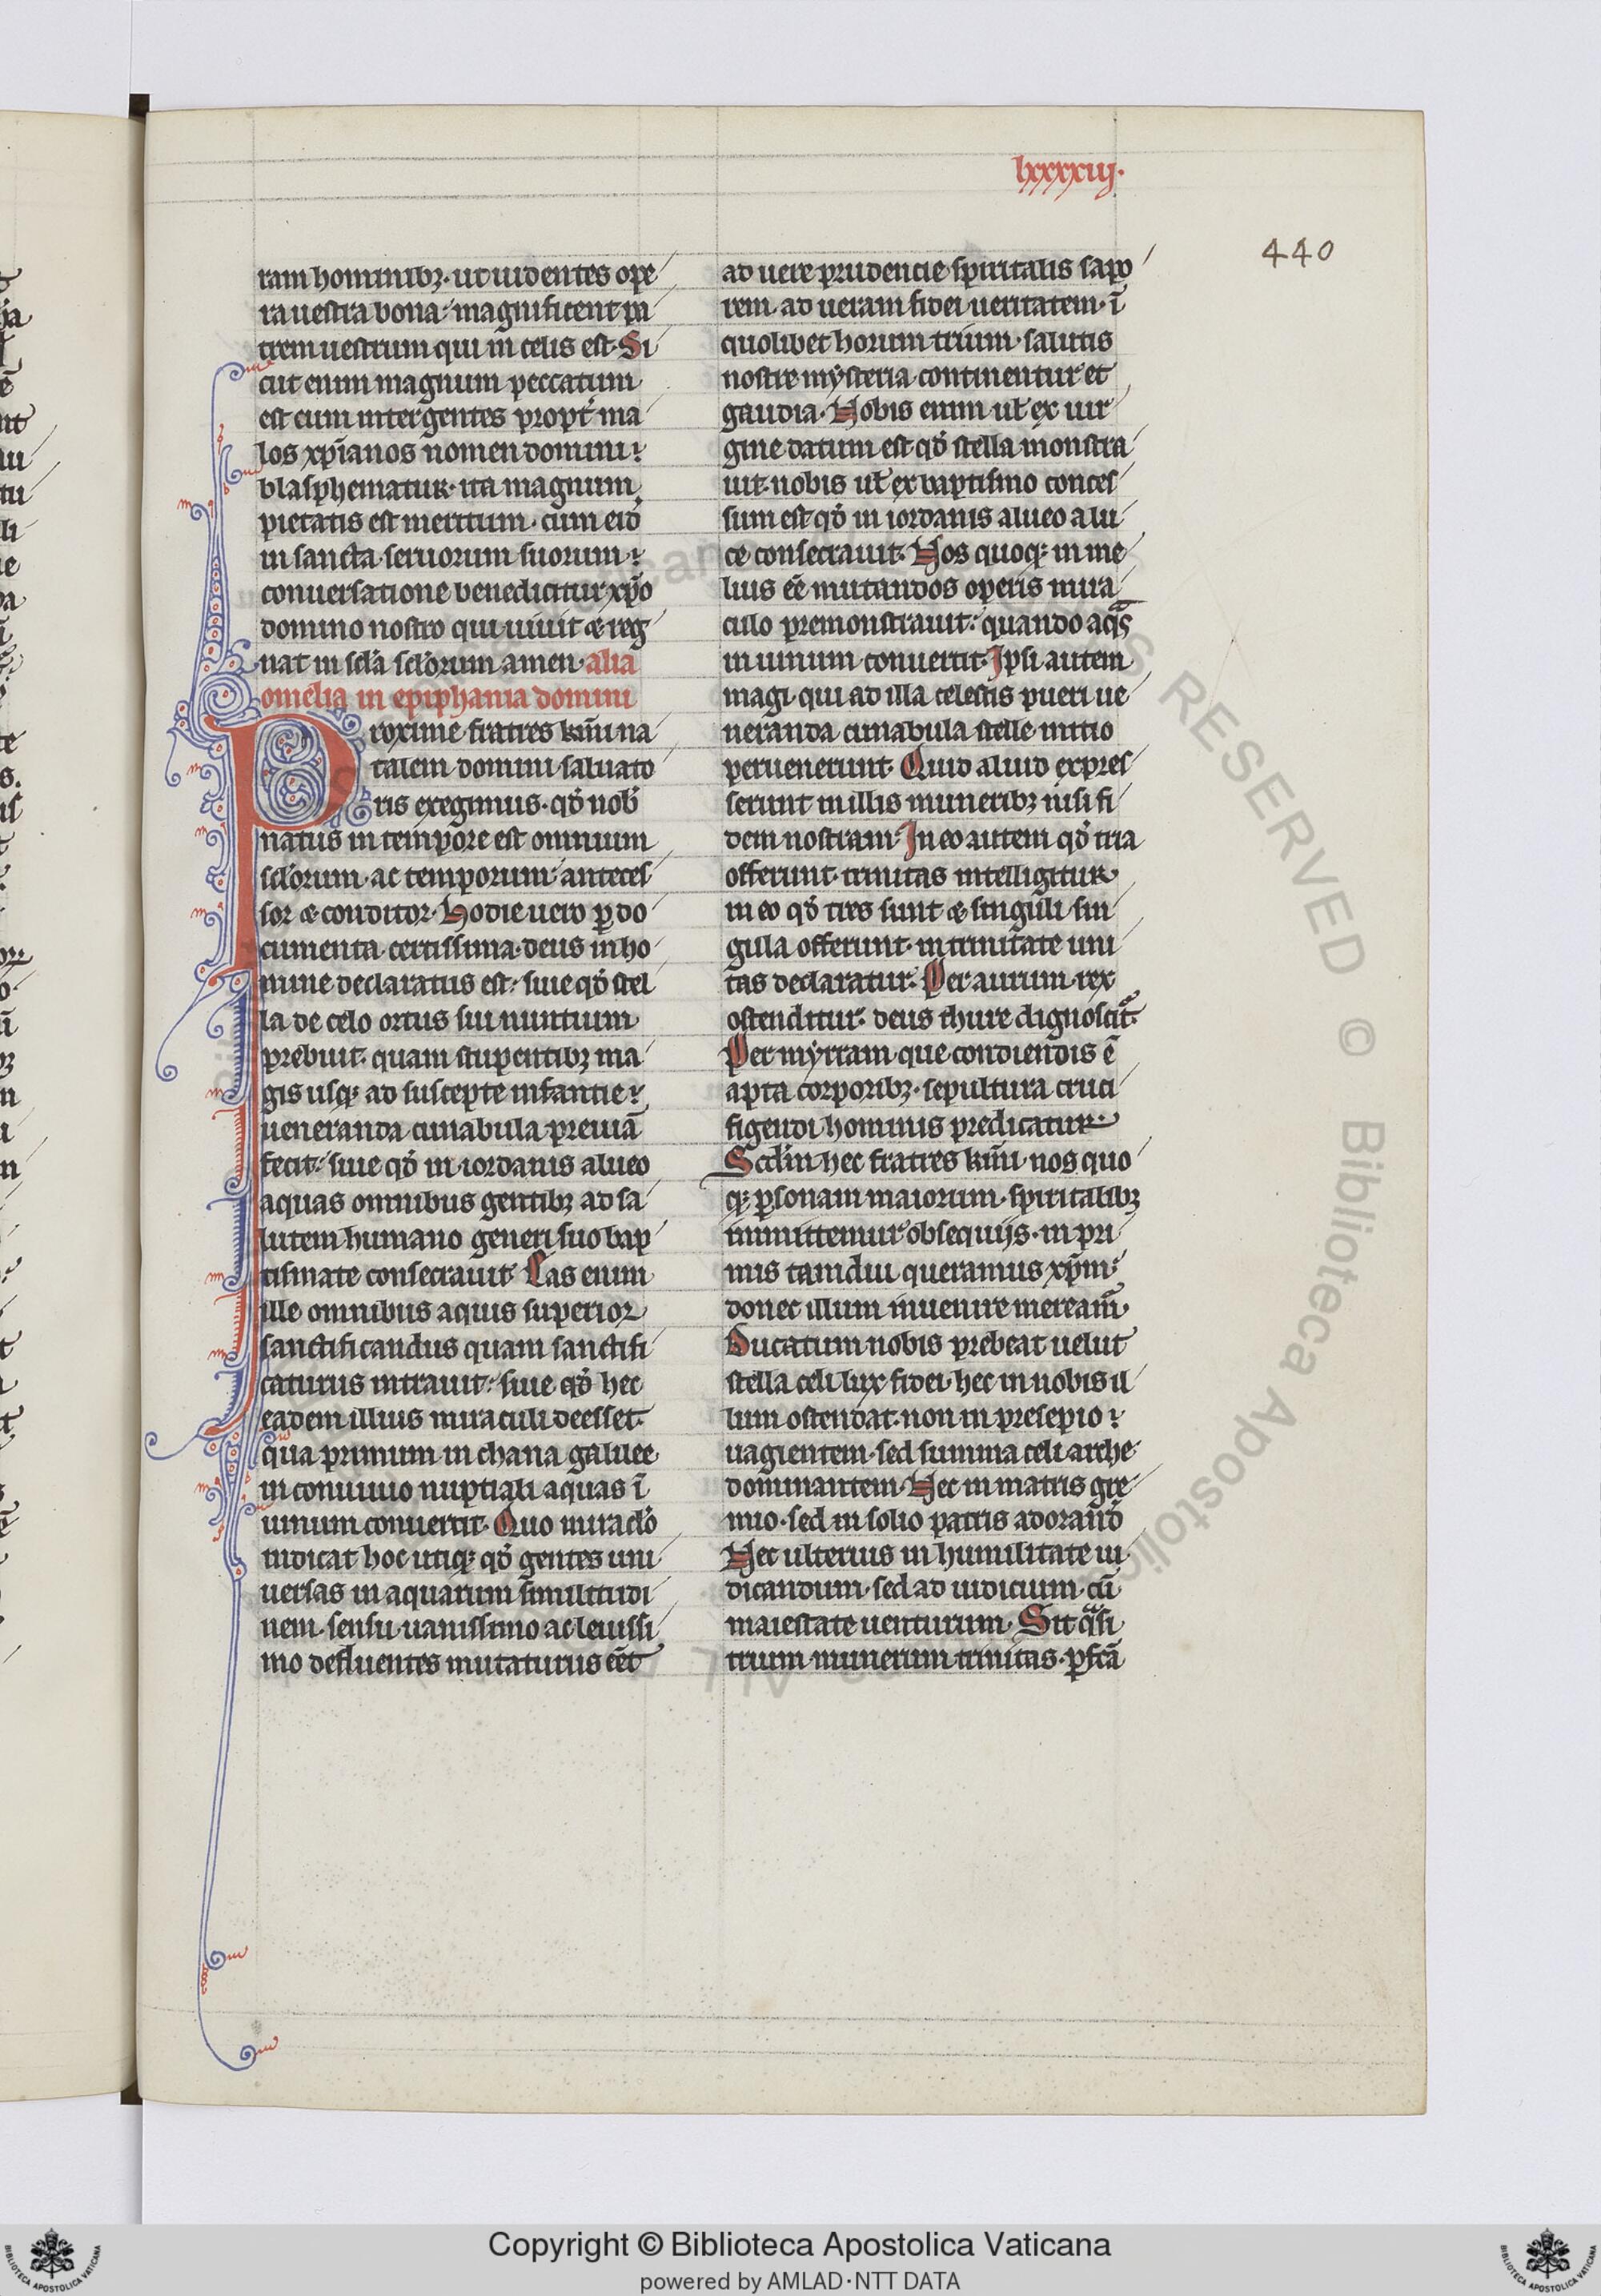 lxxxxiij.
440
ram hominibꝫ· ut uidentes ope
ra uestra bona· magnificent pa
trem uestrum qui in celis est· Si
cut enim magnum peccatum
est cum inter gentes propt̾ ma
los xp̄ianos nomen domini·
blasphematur· ita magnum
pietatis est meritum· cum eiꝰd̾
in sancta seruorum suorum·
conuersatione benedicitur xp̄o
domino nostro qui uiuit & reg
nat in scl̾a scl̾orum amen· alia
omelia in epiphania domini
Proxime fratres kmi̅ na
talem domini saluato
ris exegimus· qd̾ nob̾
natus in tempore est omnium
scl̾orum· ac temporum· anteces
sor & conditor· Hodie uero ꝑ do
cumenta certissima· deus in ho
mine declaratus est· siue qd̾ stel
la de celo ortus sui nuntium
prebuit· quam stupentibꝫ ma
gis usqꝫ ad suscepte infantie·
ueneranda cunabula preuiā
fecit· siue qd̾ in iordanis alueo
aquas omnibus gentibꝫ ad sa
lutem humano generi suo bap
tismate consecrauit· Las enim
ille omnibus aquis superior
sanctificandus quam sanctifi
caturus intrauit· siue qd̾ hec
eadem illius miraculi deesset·
qua primum in chana galilee·
in conuiuio nuptiali aquas ī
uinum conuertit· Quo miracl̾o
indicat hoc utiqꝫ qd̾ gentes uni
uersas in aquarum similitudi
nem· sensu uanissimo ac leuissi
mo defluentes mutaturus eēt
ad uere prudencie spiritalis sapo
rem· ad ueram fidei ueritatem· ī
quolibet horum trium· salutis
nostre mysteria continentur et
gaudia· Nobis enim ul̾ ex uir
gine datum est qd̾ stella monstra
uit· nobis ul̾ ex baptismo conces
sum est qd̾ in iordanis alueo a lu
ce consecrauit· Nos quoqꝫ in me
lius eē mutandos operis mira
culo premonstrauit· quando aqᵃs
in uinum conuertit· Ipsi autem
magi· qui ad illa celestis pueri ue
neranda cunabula stelle initio
peruenerunt· Quid aliud expres
serunt in illis muneribꝫ nisi fi
dem nostram· In eo autem qd̾ tria
offerunt· trinitas intelligitur
in eo qd̾ tres sunt & singuli sin
gula offerunt· in trinitate uni
tas declaratur· Per aurum rex
ostenditur· deus thure dignoscit᷑
Per myrram que condiendis ē
apta corporibꝫ· sepultura cruci
figendi hominis predicatur·
Scdm̅ hec fratres kmi̅ nos quo
qꝫ ꝑsonam maiorum· spiritalibꝫ
immittemur obsequijs· in pri
mis tamdiu queramus xp̄m·
donec illum inuenire meream᷑·
Ducatum nobis prebeat uelut
stella celi lux fidei· hec in nobis il
lum ostendat· non in presepio·
uagientem· sed summa celi arche
dominantem· Nec in matris gre
mio· sed in solio patris adorand̾
Nec ulterius in humilitate iu
dicandum· sed ad iudicium· cū
maiestate uenturum· Sit qᵃsi
trium munerum trinitas· ꝑfcā
Copyright © Biblioteca Apostolica Vaticana
powered by AMLAD·NTT DATA